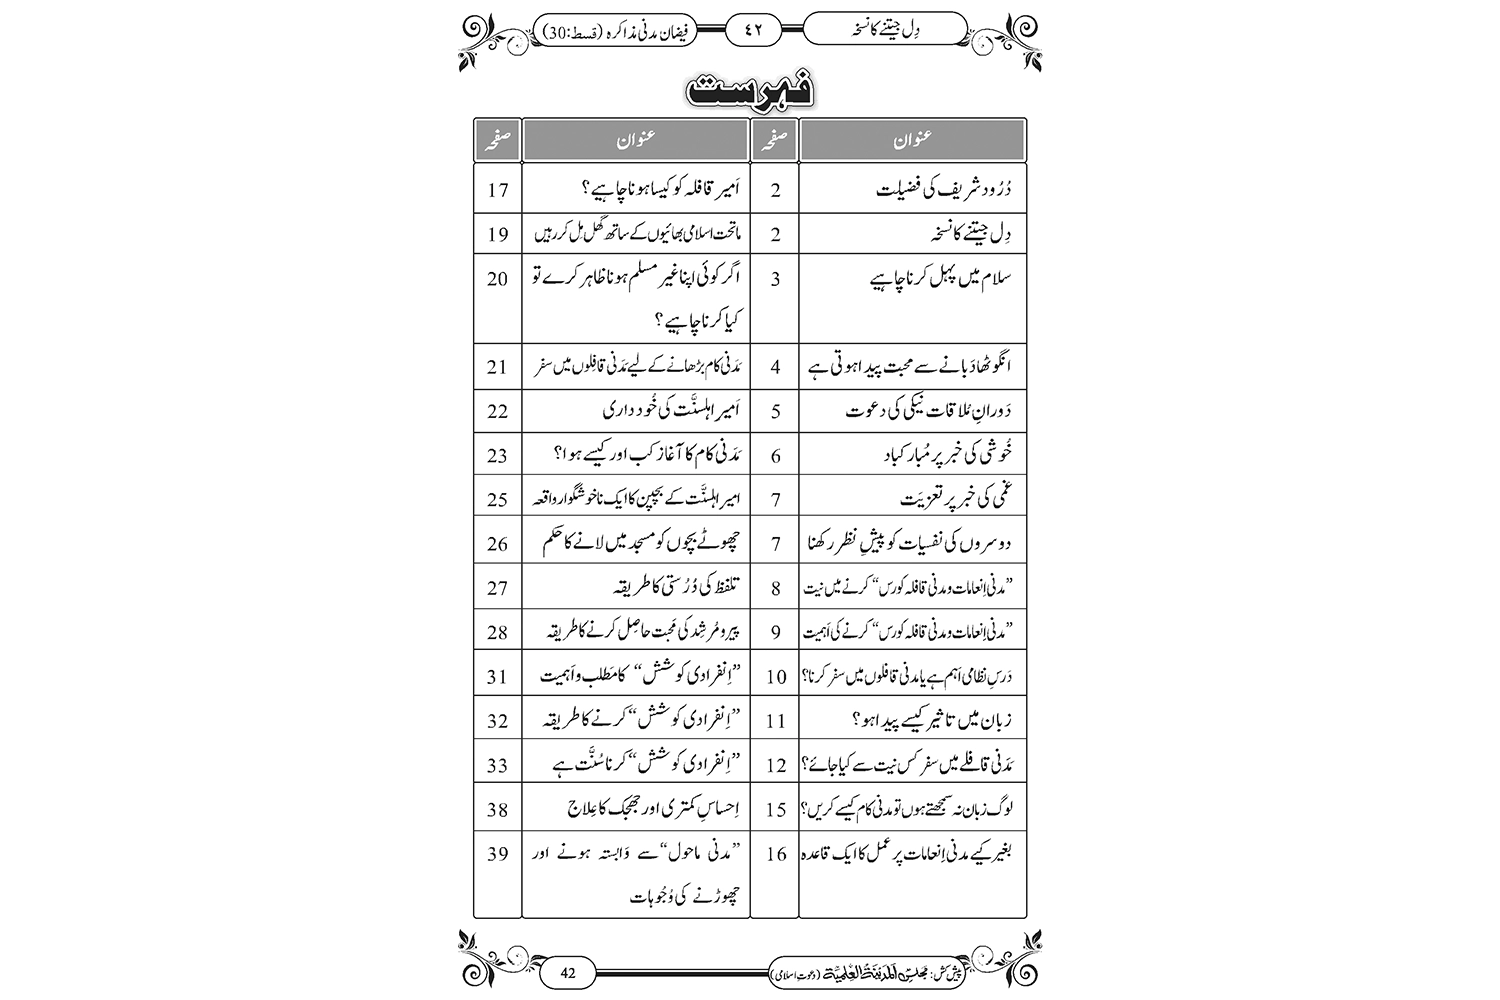 دِل جیتنے کا نسخہ ٤٢ فیضان مدنی مذاکرہ (قسط:30)
فہرست
عنوان صفحہ عنوان صفحہ
دُرُود شریف کی فضیلت 2 اَمیرِ قافلہ کو کیسا ہونا چاہیے؟ 17
دِل جیتنے کا نسخہ 2 ماتحت اسلامی بھائیوں کے ساتھ گھل مِل کر رہیں 19
سلام میں پہل کرنا چاہیے 3 اگر کوئی اپنا غیر مسلم ہونا ظاہر کرے تو 20
کیا کرنا چاہیے؟
انگوٹھا دَبانے سے محبت پیدا ہوتی ہے 4 مَدَنی کام بڑھانے کے لیے مَدَنی قافِلوں میں سفر 21
دَورانِ مُلاقات نیکی کی دعوت 5 اَمیرِ اہلسنَّت کی خُود داری 22
خُوشی کی خبر پر مُبارکباد 6 مَدَنی کام کا آغاز کب اور کیسے ہوا؟ 23
غمی کی خبر پر تعزیَت 7 امیرِ اہلسنَّت کے بچپن کا ایک ناخوشگوار واقعہ 25
دوسروں کی نفسیات کو پیشِ نظر رکھنا 7 چھوٹے بچّوں کو مسجد میں لانے کا حکم 26
”مدنی اِنعامات و مدنی قافلہ کورس“ کرنے میں نیت 8 تلفظ کی دُرُستی کا طریقہ 27
”مدنی اِنعامات و مدنی قافلہ کورس“ کرنے کی اَہمیت 9 پیر و مُرشِد کی مَحبت حاصِل کرنے کا طریقہ 28
دَرسِ نظامی اَہم ہے یا مدنی قافلوں میں سفر کرنا؟ 10 ”اِنفرادی کوشش“ کا مَطلب و اَہمیت 31
زبان میں تاثیر کیسے پیدا ہو؟ 11 ”اِنفرادی کوشش“ کرنے کا طریقہ 32
مَدَنی قافلے میں سفر کس نیت سے کیا جائے؟ 12 ”اِنفرادی کوشش“ کرنا سُنَّت ہے 33
لوگ زبان نہ سمجھتے ہوں تو مدنی کام کیسے کریں؟ 15 اِحساسِ کمتری اور جھجک کا عِلاج 38
بغیر کیے مدنی اِنعامات پر عمل کا ایک قاعدہ 16 ”مدنی ماحول“ سے وَابستہ ہونے اور 39
چھوڑنے کی وُجُوہات
پیش کش: مجلس اَلمدینۃُ العلمیۃ (دعوتِ اسلامی) 42